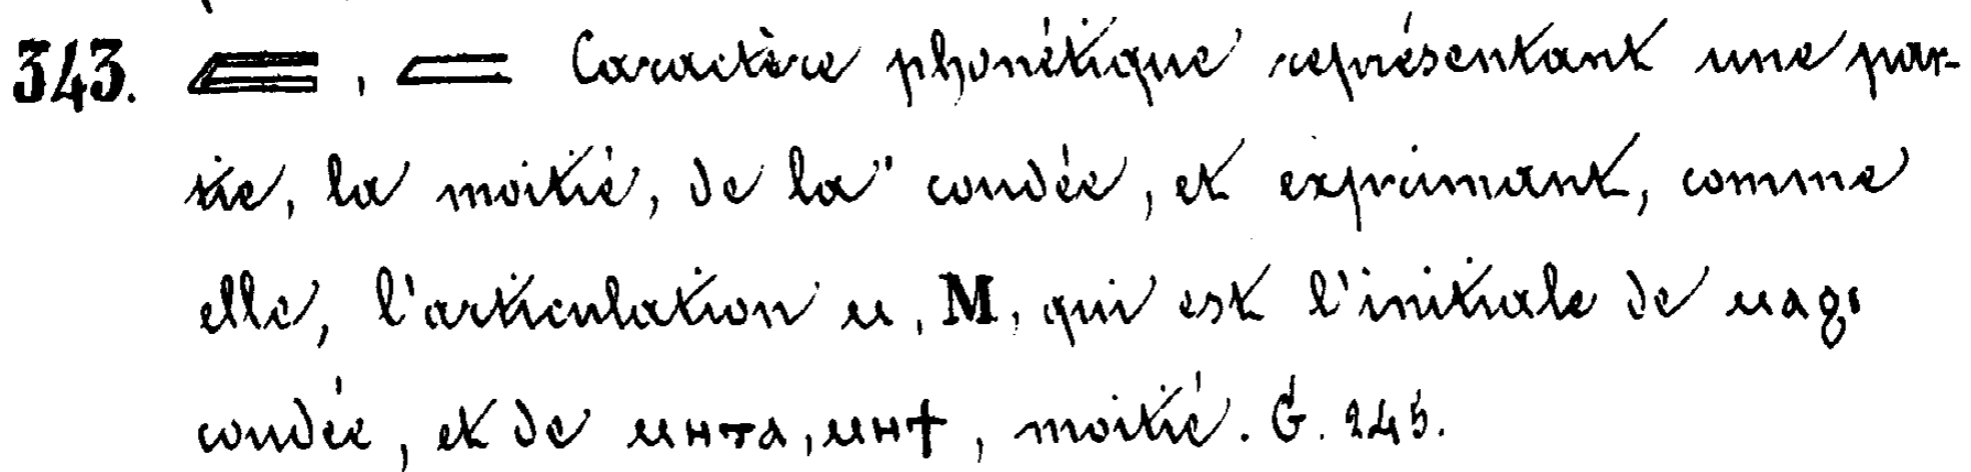 343. 𓐝 , 𓐛 Caractère phonétique représentant une par-
tie, la moitié, de la coudée, et exprimant, comme
elle, l'articulation ⲙ, M, qui est l'initiale de ⲙⲁϩⲓ
coudée, et de ⲙⲏⲧⲁ, ⲙⲏϯ, moitié. G. 245.